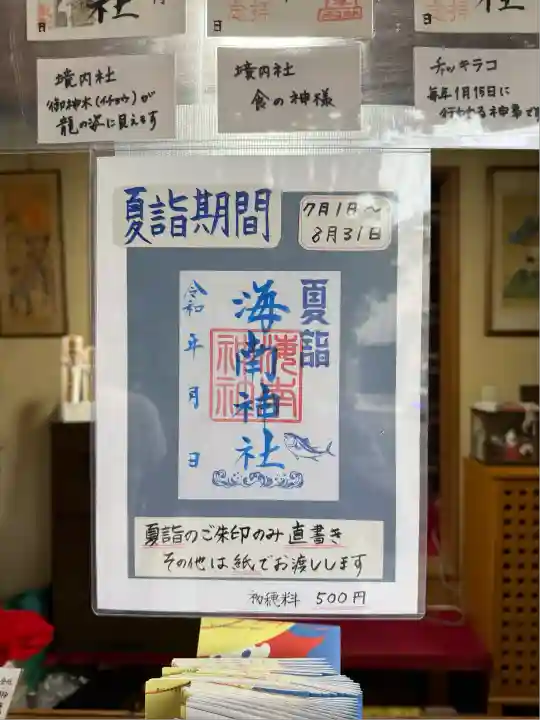 社
日
日
社
境内社
御神木(イチョウ)が
龍の姿に見えます
境内社
食の神様
チャッキラコ
毎年1月15日に
行われる神事で
夏詣期間
7月1日～
8月31日
夏詣
海南神社
令和 年 月 日
夏詣のご朱印のみ直書き
その他は紙でお渡しします
初穂料 500円